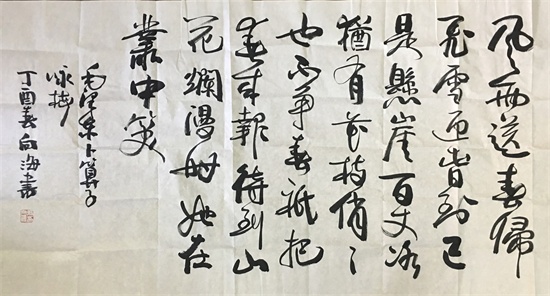 風雨送春歸
飛雪迎旾到已
是懸崖百丈冰
猶有花枝俏〻
也不爭春祇把
春來報待到山
花爛漫時她在
叢中笑
毛澤東卜算子
詠梅
丁酉春向海書